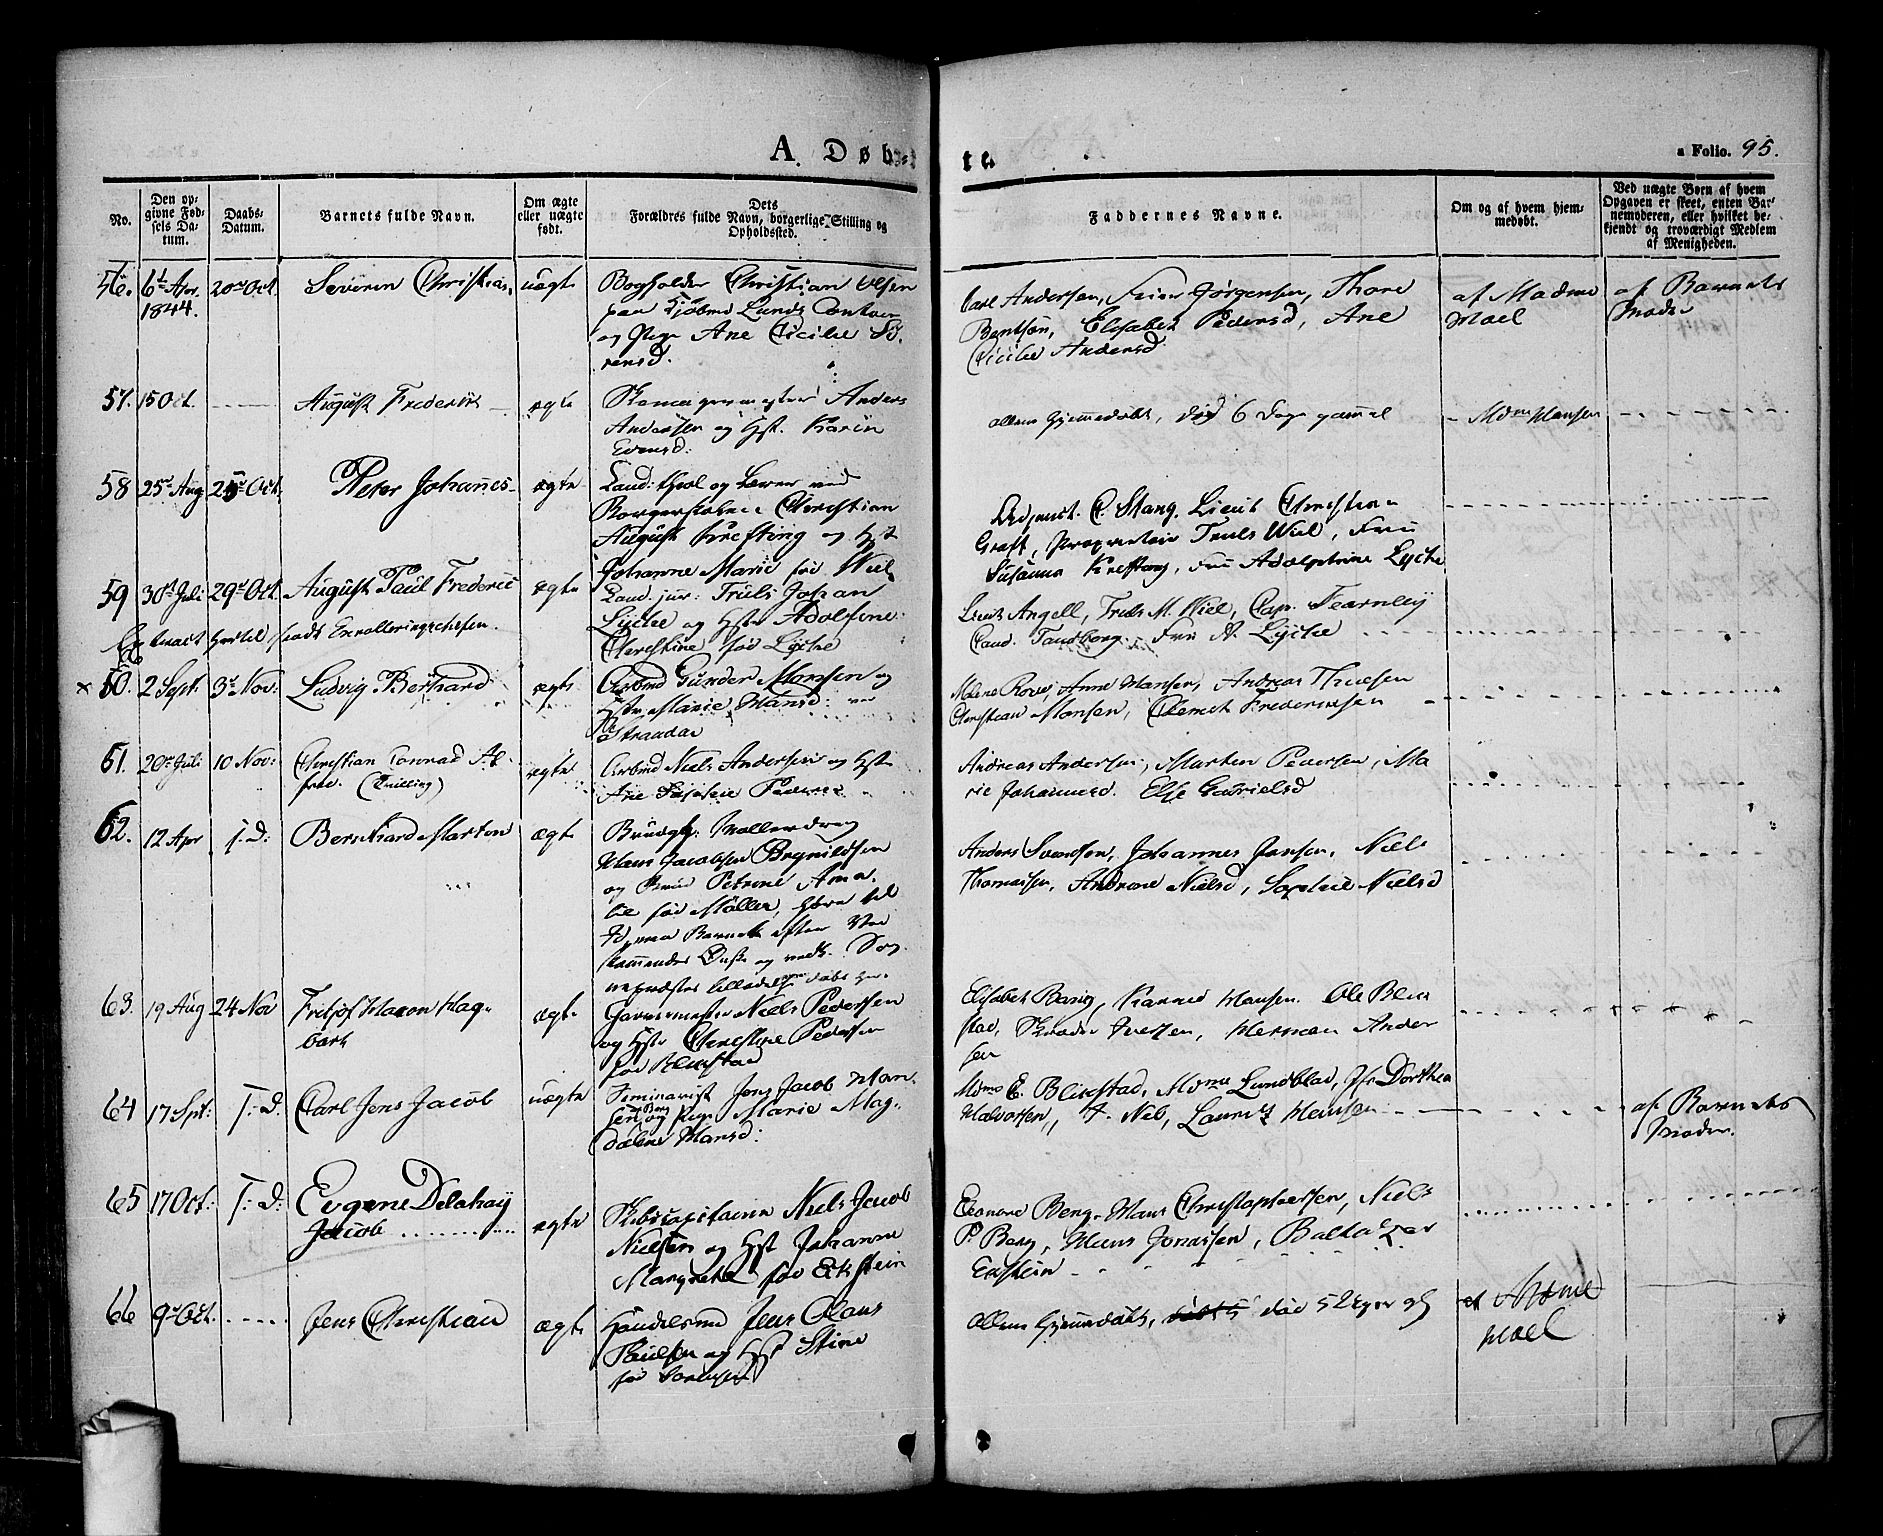 A. Døb=
te.
a Folio. 95.
No.
Den op-
givne Fød-
sels Da-
tum.
Daabs-
Datum.
Barnets fulde Navn.
Om ægte
eller uægte
født.
Dets
Forældres fulde Navn, borgerlige Stilling og
Opholdssted.
Faddernes Navne.
Om og af hvem hjem-
medøbt.
Ved uægte Børn af hvem
Opgaven er skeet, enten Bar-
nemoderen, eller hvilket be-
kjendt og troværdigt Medlem
af Menigheden.
56. 6t Apr. 20de Oct Severin Christian uægte Bogholder Christian Olsen
1844.
paa Kjøbmd Lunds Contoir
og Pige Ane Cicilie Sö-
rensd.
Carl Andersen, Jørgensen, Thore
Bentsön, Elisabet Pedersd, Ane
Cicilie Andersd
af Madme
Moel
af Barnets
Moder
57. 15 Oct. August Frederik ægte Skomagermester Anders
Andersen og Hst. Karin
Evensd.
allene hjemmedøbt, död 6 Dage gammel - Mdme Hansen
58 25de Aug 25de Oct. Peter Johannes ægte Cand: theol og Lærer ved
Borgerskolen Christian
August Krefting og Hst
Johanne Marie föd Wiel
C. Stang, Lieut Christian
Graff, Proprietair Truls Wiel, Fru
Susanna Krefting, Fru Adolphine Lycke
59 30te Juli 29de Oct. August Paul Frederic ægte Cand. jur: Truls Johan
Lycke og Hst Adolfine
Christine föd Lycke
Extract Enrolleringschefen.
Lieut Angell, Truls M. Wiel, Cap. Fearnley
Cand. Tandberg Fru A. Lycke
x 60. 2 Sept. 3de Nov. Ludvig Berhard ægte Arbmd Gunder Monsen og
Hst Marie Hansd:
Stranda
Rove, Anne Hansen, Andreas Thuesen
Christian Monsen, Clemet Frederiksen
61. 20de Juli 10 Nov: Christian Conrad Al-
fred. (Tvilling)
ægte Arbmd Niels Andersen og Hst
Ane Pedersd
Andreas Andersen, Marten Pedersen, Ma
rie Johannesd. Else Gabrielsd
62. 12 Apr I: D: Bernhard Marton ægte Brudgs: Möllerdreng
Hans Jacobsen Brynildsen
og Brud Petrine Ama-
lie föd Möller,
Barnet efter Ved
kommendes Önske og Sog
nepræstes tilladelse
Anders Svendsen, Johannes Jansen, Niels
Thomassen, Andrine Nielsd, Sophie Nielsd
63. 19 Aug 24 Nov Fritjof Hacon Hag-
bart
ægte Garvermester Niels Pedersen
og Hst Christine Pedersen
föd Blikstad
Elisabet Barig, Karned Hansen. Ole Blik
stad, Skrader Iversen, Herman Ander
sen
64 17 Spt: I: D: Carl Jens Jacob uægte Seminarist Jens Jacob Han-
sen Berg og Pige Marie Mag-
dalene Hansd:
Mdme E. Blikstad, Mdme Lundblad, Jfr Dorthea
Halvorsen, F. Neb, Lauritz Hansen
af Barnets
Moder.
65 17 Oct: I: D: Eugene Delahay
Jacob
ægte Skibscapitaine Niels Jacob
Nielsen og Hst Johanne
Margrete föd Eckstein
Eleonore Berg, Hans Christophersen, Niels
P. Berg, Hans Jonassen, Baltazar
Eckstein
66 9de Oct. Jens Christian ægte Handelsmd Jens Claus
Paulsen og Hst Stine
föd Sörensen
allene hjemmedöbt, död 5 Uger gl af Mdme
Moel